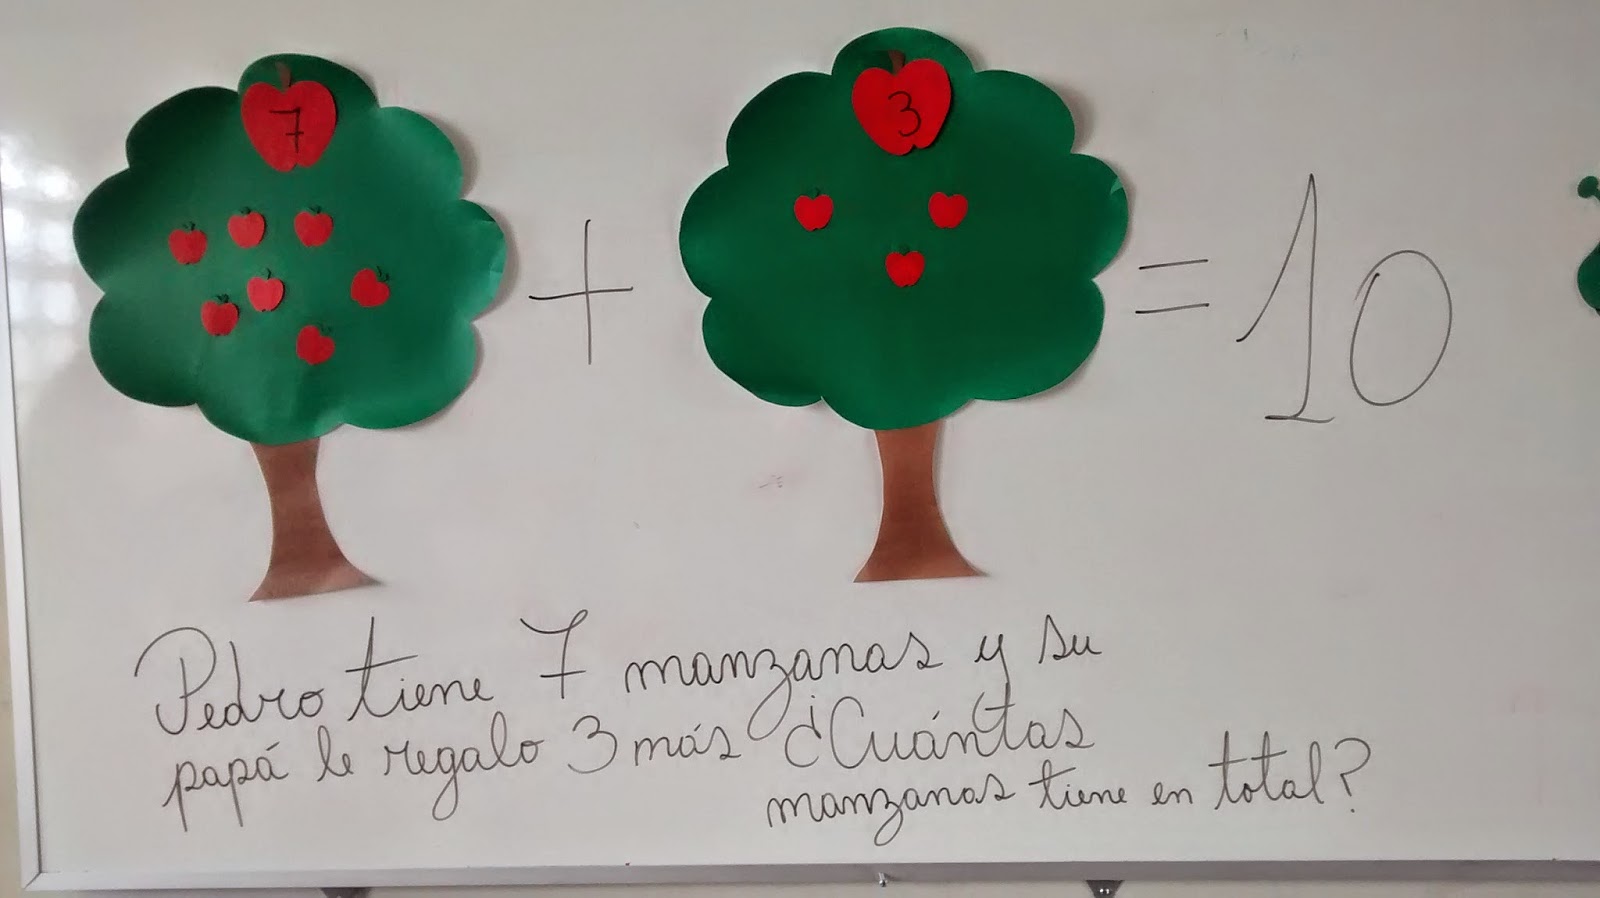 7 + 3 = 10
Pedro tiene 7 manzanas y su
papá le regalo 3 más ¿Cuántas
manzanas tiene en total?